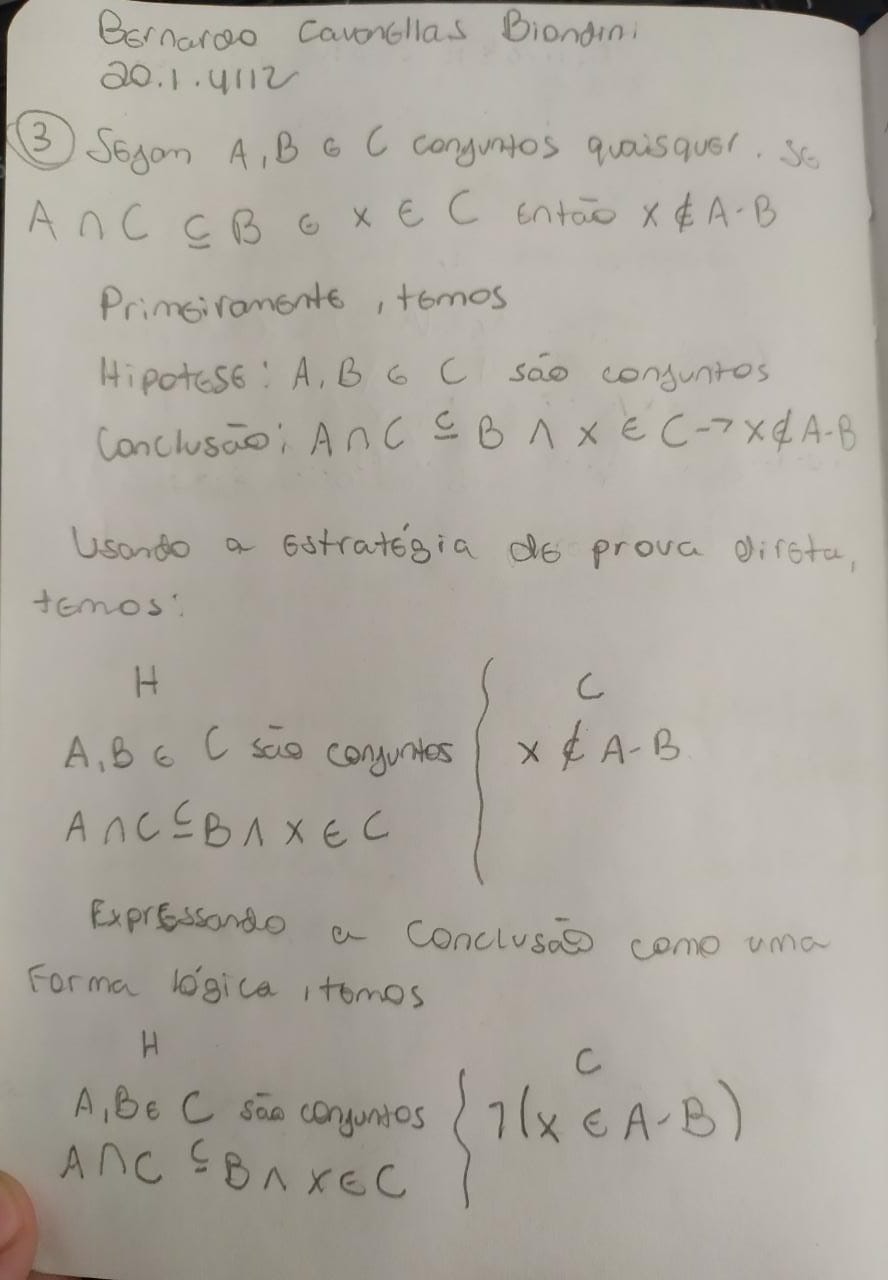 Bernardo Cavanellas Biondini
20.1.4112
3 Sejam A, B e C conjuntos quaisquer. Se
A ∩ C ⊆ B e x ∈ C então x ∉ A-B
Primeiramente, temos
Hipotese: A, B e C são conjuntos
Conclusão: A ∩ C ⊆ B ∧ x ∈ C → x ∉ A-B
Usando a estratégia de prova direta,
temos:
H C
A, B e C são conjuntos x ∉ A-B
A ∩ C ⊆ B ∧ x ∈ C
Expressando a conclusão como uma
forma lógica, temos
H C
A, B e C são conjuntos ¬(x ∈ A-B)
A ∩ C ⊆ B ∧ x ∈ C